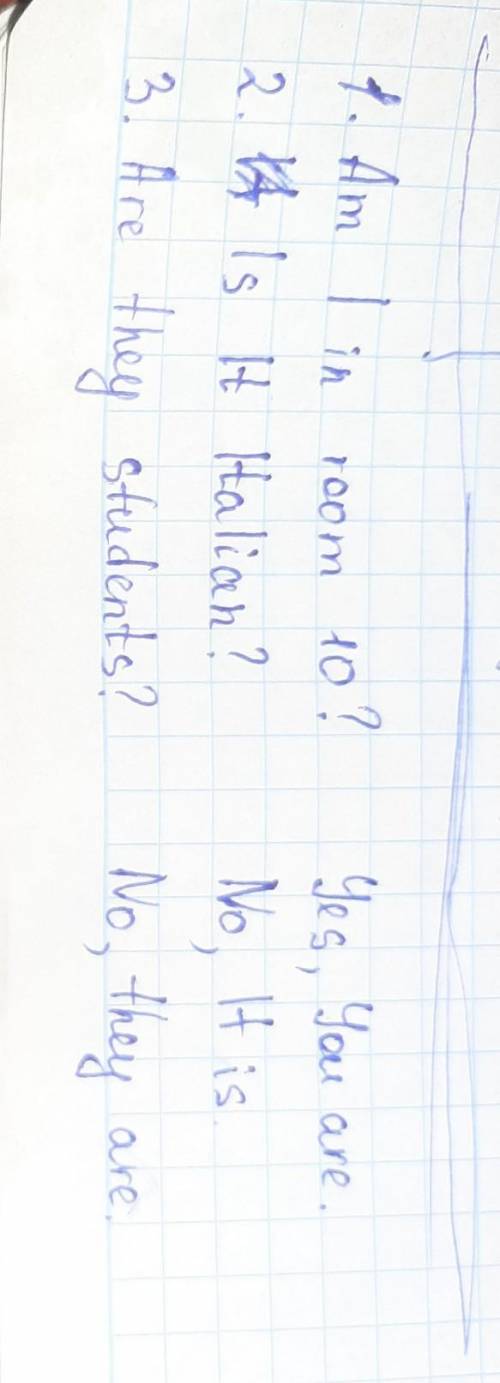 1. Am I in room 10? Yes, You are.
2. Is It Italian? No, It is.
3. Are they students? No, they are.